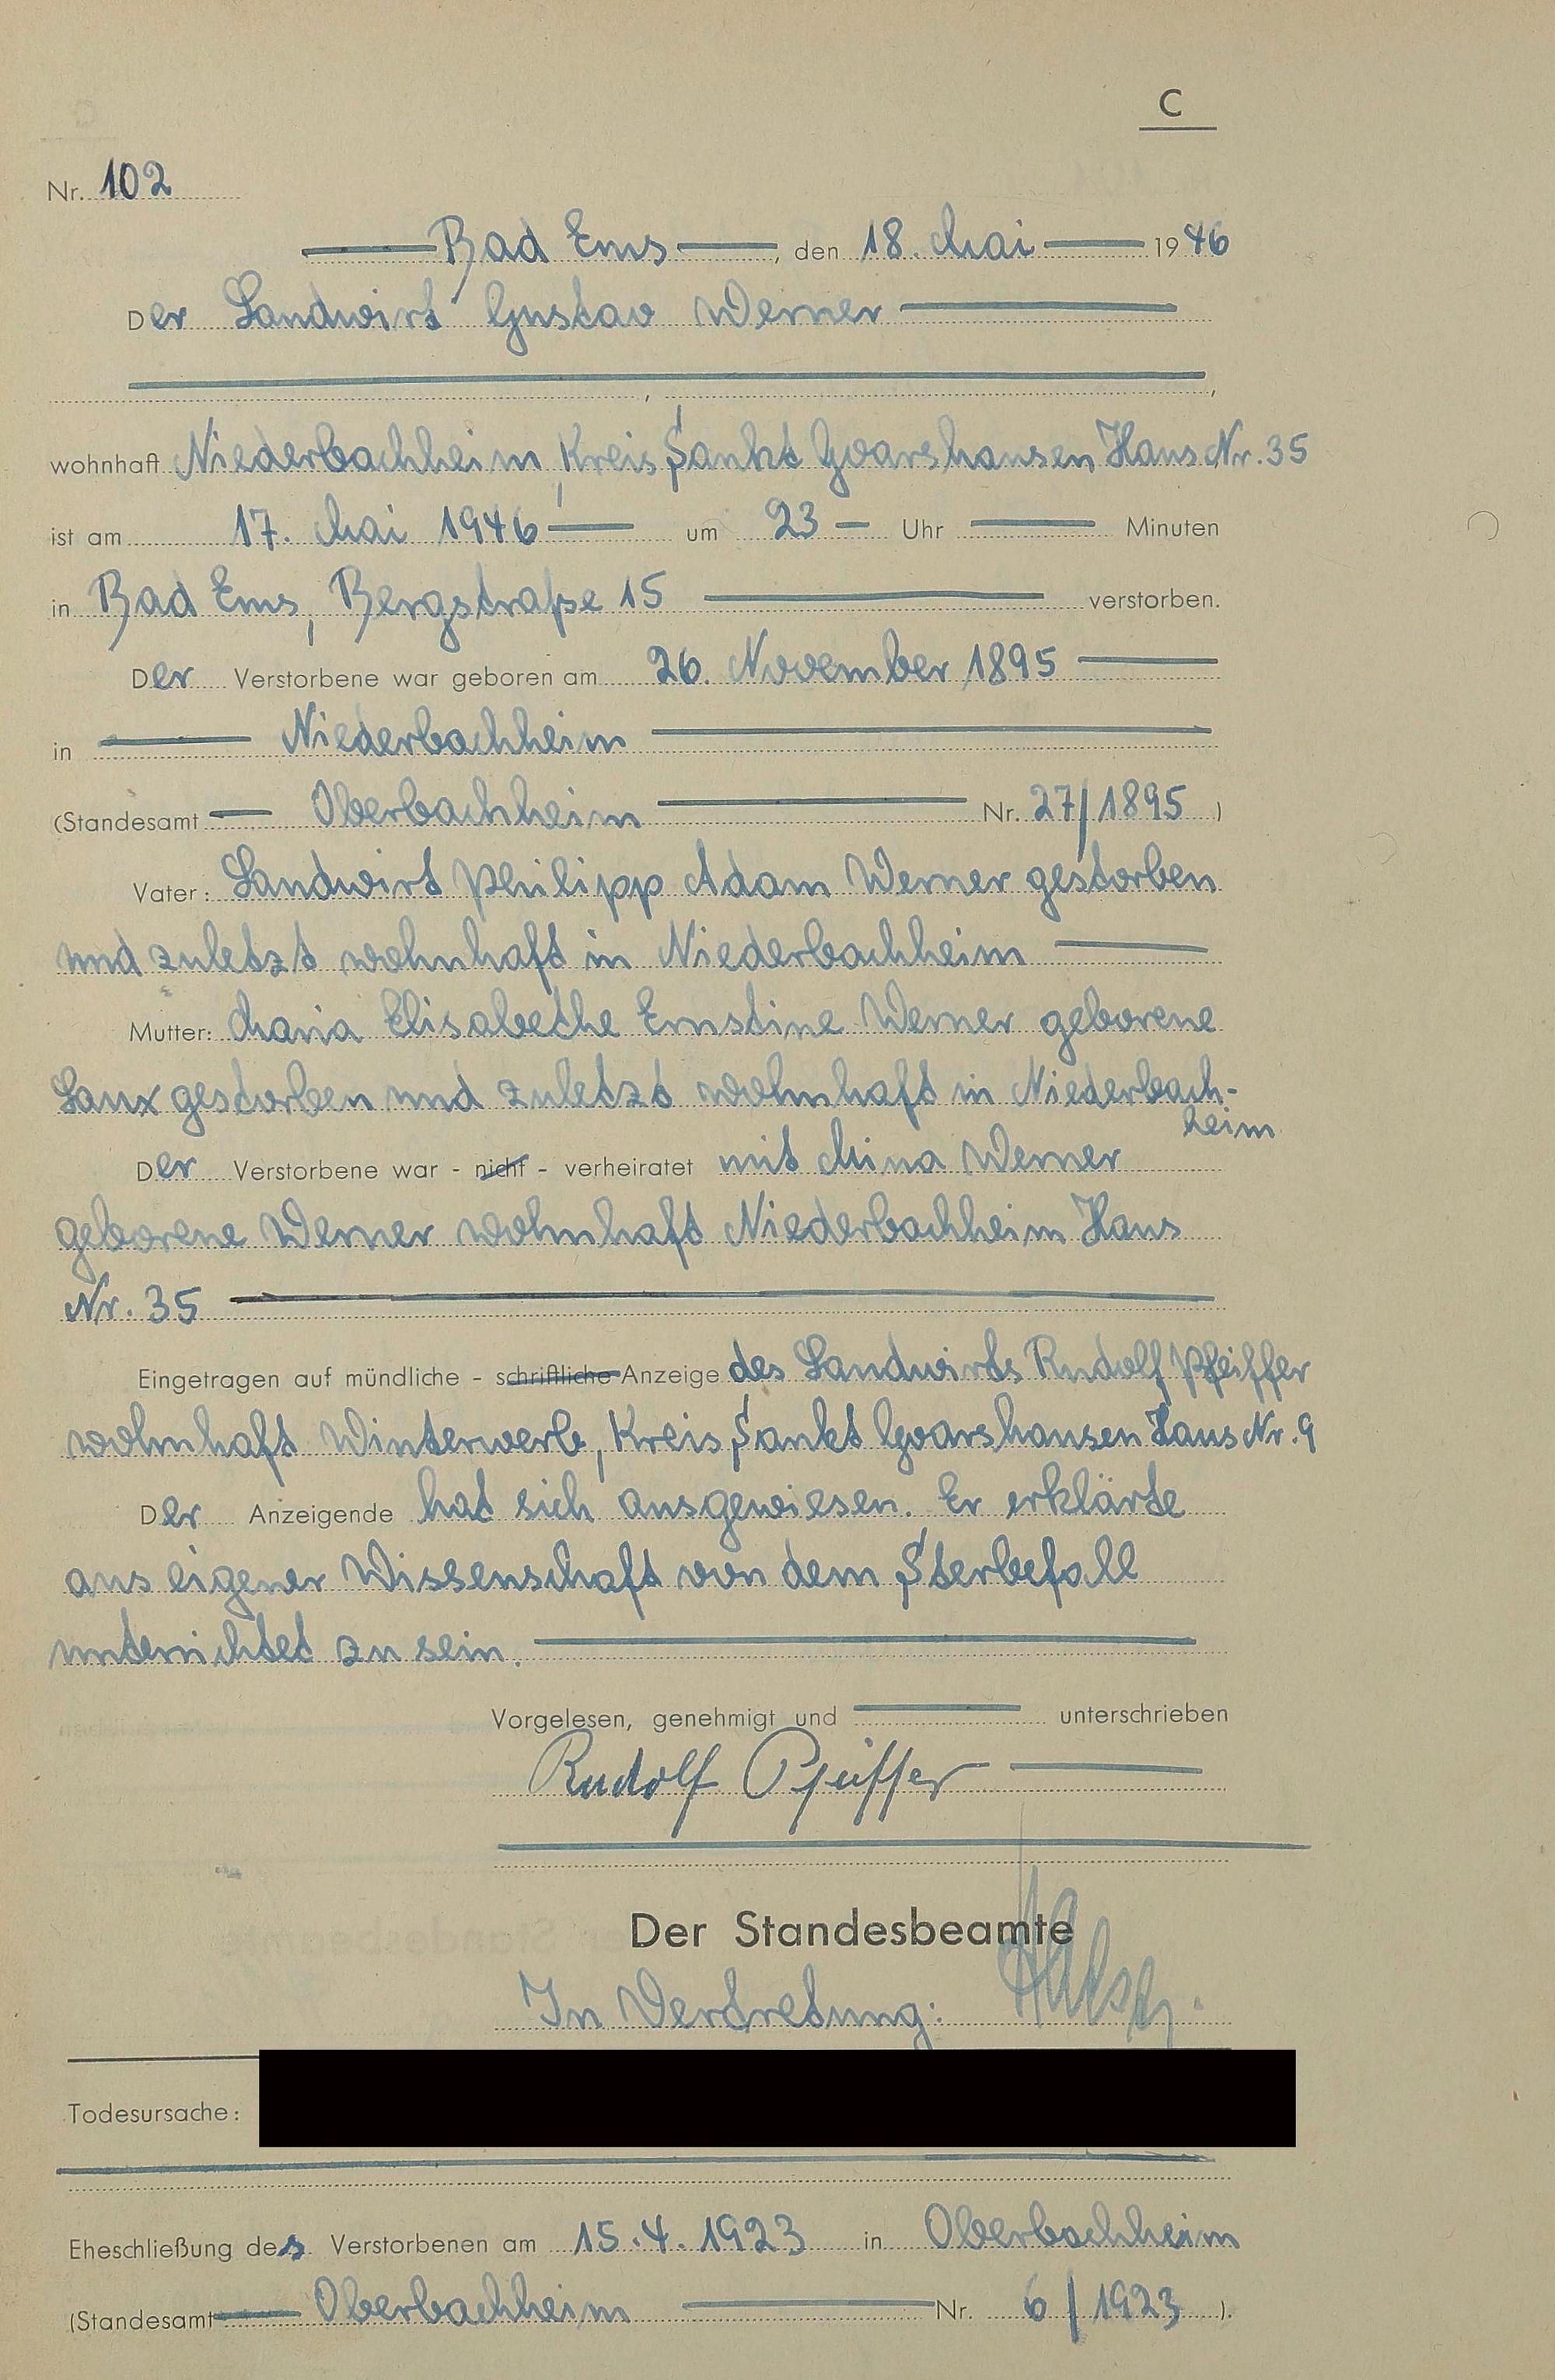 C
Nr. 102
Bad Ems, den 18. Mai 1946
Der Landwirt Gustav Werner
wohnhaft Niederbachheim, Kreis Sankt Goarshausen Haus Nr. 35
ist am 17. Mai 1946 um 23 Uhr Minuten
in Bad Ems, Bergstraße 15 verstorben.
Der Verstorbene war geboren am 26. November 1895
in Niederbachheim
(Standesamt Oberbachheim Nr. 27/1895)
Vater: Landwirt Philipp Adam Werner gestorben
und zuletzt wohnhaft in Niederbachheim
Mutter: Maria Elisabethe Ernstine Werner geborene
Laux gestorben und zuletzt wohnhaft in Niederbach-
heim
Der Verstorbene war - nicht - verheiratet mit Mina Werner
geborene Werner wohnhaft Niederbachheim Haus
Nr. 35
Eingetragen auf mündliche - schriftliche Anzeige des Landwirts Rudolf Pfeiffer
wohnhaft Winterwerb, Kreis Sankt Goarshausen Haus Nr. 9
Der Anzeigende hat sich ausgewiesen. Er erklärte
aus eigener Wissenschaft von dem Sterbefall
unterrichtet zu sein.
Vorgelesen, genehmigt und unterschrieben
Rudolf Pfeiffer
Der Standesbeamte
In Vertretung:
Todesursache:
Eheschließung des Verstorbenen am 15.4.1923 in Oberbachheim
(Standesamt Oberbachheim Nr. 6/1923).